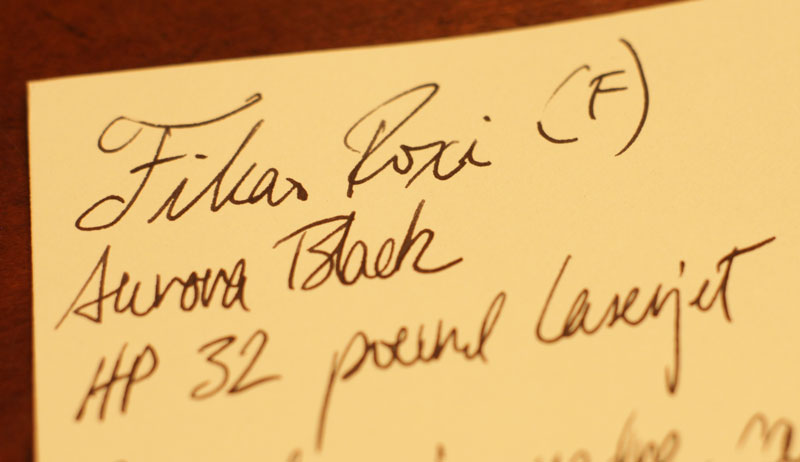 Fikas Roxi (F)
Aurora Black
HP 32 pound Laserjet